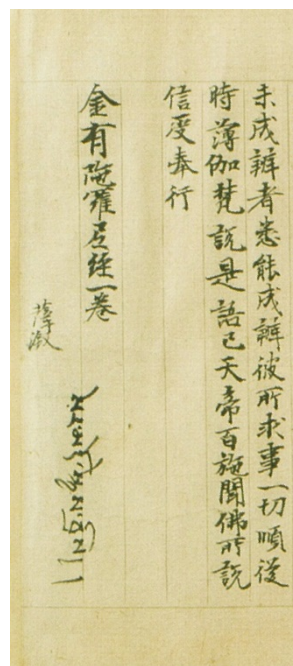 未成辦者悉能成辦彼所求事一切順從
時薄伽梵說是語已天帝百施聞佛所說
信受奉行
金有陀羅尼經一卷